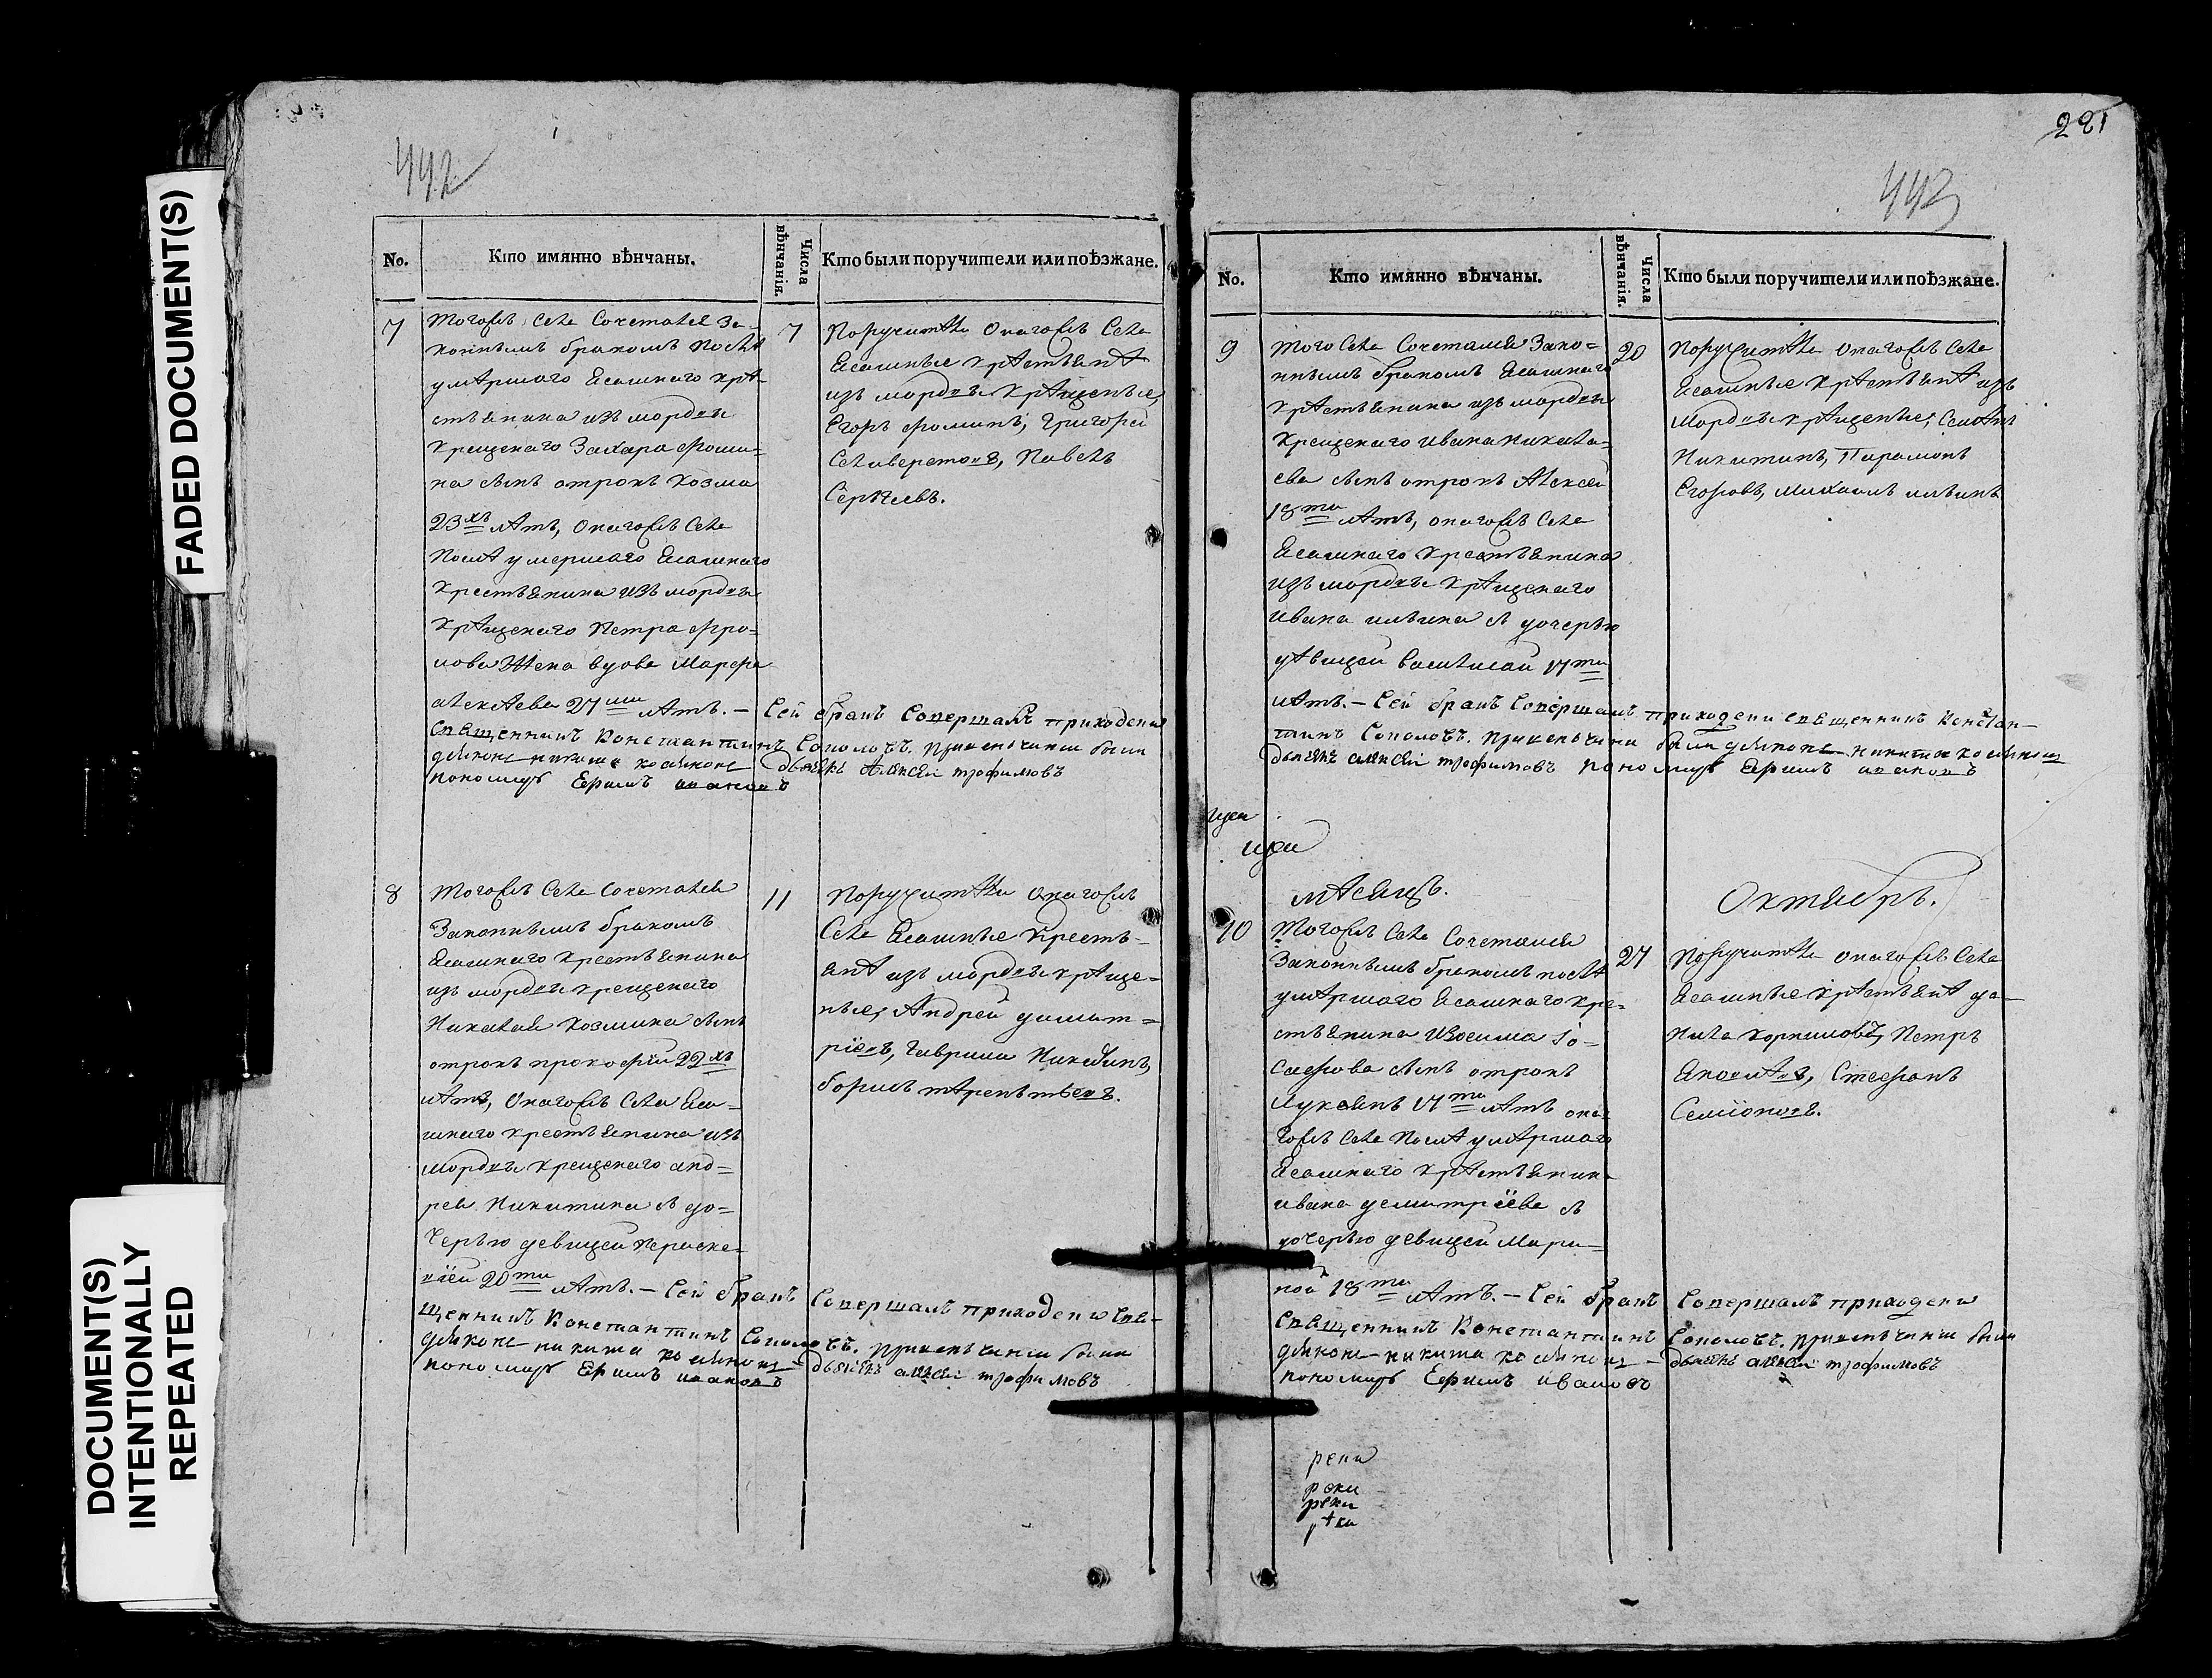 FADED DOCUMENT(S)
DOCUMENT(S)
INTENTIONALLY
REPEATED
442
No.
Кто имянно вѣнчаны.
Числа вѣнчанія.
Кто были поручители или поѣзжане.
7
Тогожъ села сочетался за-
коннымъ бракомъ послѣ
умѣршаго ясашнаго крѣ-
стьянина изъ мордвы
крещенаго Захара Фоми-
на сынъ отрокъ Козма
23хъ лѣтъ, онагожъ села
послѣ умершаго ясашнаго
крестьянина изъ мордвы
крѣщенаго Петра Фро-
лова жена вдова Марфа
Алексѣева 27ми лѣтъ. — Сей бракъ совершалъ приходской
священникъ Константинъ Соколовъ. При венчании были
дьяконъ Никита
дьячекъ Алексей Трофимовъ
пономарь Ефимъ Ивановъ
7
Поручитѣли онагожъ села
ясашные крѣстьянѣ
изъ мордвы крѣщеные,
Егоръ Фоминъ, Григорей
Селиверстовъ, Павелъ
Сергѣевъ.
8
Тогожъ села сочетался
законнымъ бракомъ
ясашнаго крестьянина
изъ мордвы крещенаго
Николая Козмина сынъ
отрокъ Прокофїи 22хъ
лѣтъ, онагожъ села яса-
шнаго крестьянина изъ
мордвы крещенаго Анд-
рея Никитина съ до=
черью девицей Параске-
вїей 20ти лѣтъ. — Сей бракъ совершалъ приходской свя-
щенникъ Константинъ Соколовъ. При венчании были
дьяконъ Никита
дьячекъ Алексей Трофимовъ
пономарь Ефимъ Ивановъ
11
Поручитѣли онагожъ
села ясашные кресть-
янѣ изъ мордвы крѣще-
ные, Андрей Димит=
рїевъ, Гаврила Никитинъ,
Борисъ Тѣрентьевъ.
221
443
No.
Кто имянно вѣнчаны.
Числа вѣнчанія.
Кто были поручители или поѣзжане.
9
Того села сочетался зако=
ннымъ бракомъ ясашнаго
крѣстьянина изъ мордвы
крещенаго Ивана Никола=
ева сынъ отрокъ Алексей
18ти лѣтъ, онагожъ села
ясашнаго крестьянина
изъ мордвы крѣщенаго
Ивана Ильина съ дочерью
дѣвицей Василисой 17ти
лѣтъ. — Сей бракъ совершалъ приходской священникъ Констан-
тинъ Соколовъ. При венчании были дьяконъ Никита
дьячекъ Алексей Трофимовъ пономарь Ефимъ Ивановъ
20
Поручитѣли онагожъ села
ясашные крѣстьянѣ изъ
мордвы крѣщеные, Семенъ
Никитинъ, Парамонъ
Егоровъ, Михаилъ Ильинъ
мѣсяцъ.
Октябрь.
10
Тогожъ села сочетался
законнымъ бракомъ послѣ
умѣршаго ясашнаго кре-
стьянина Изосима Іо=
сафова сынъ отрокъ
Лукоянъ 17ти лѣтъ она-
гожъ села послѣ умѣршаго
ясашнаго крѣстьянина
Ивана Демитрїева съ
дочерью девицей Мари=
ной 18ти лѣтъ. — Сей бракъ совершалъ приходской
священникъ Константинъ Соколовъ. При венчании были
дьяконъ Никита
дьячекъ Алексей Трофимовъ
пономарь Ефимъ Ивановъ
27
Поручитѣли онагожъ села
ясашные крѣстьянѣ Да-
нила Корниловъ, Петръ
Яковлѣвъ, Стефанъ
Семїоновъ.
реки
реки
рѣки